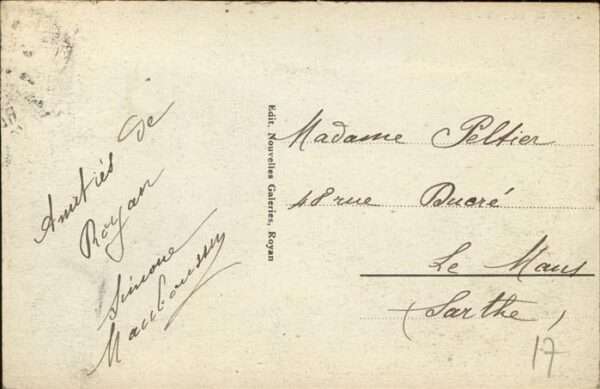 Amitiés de
Royan
Simone
Edit. Nouvelles Galeries, Royan
Madame Peltier
48 rue Ducré
Le Mans
(Sarthe)
17